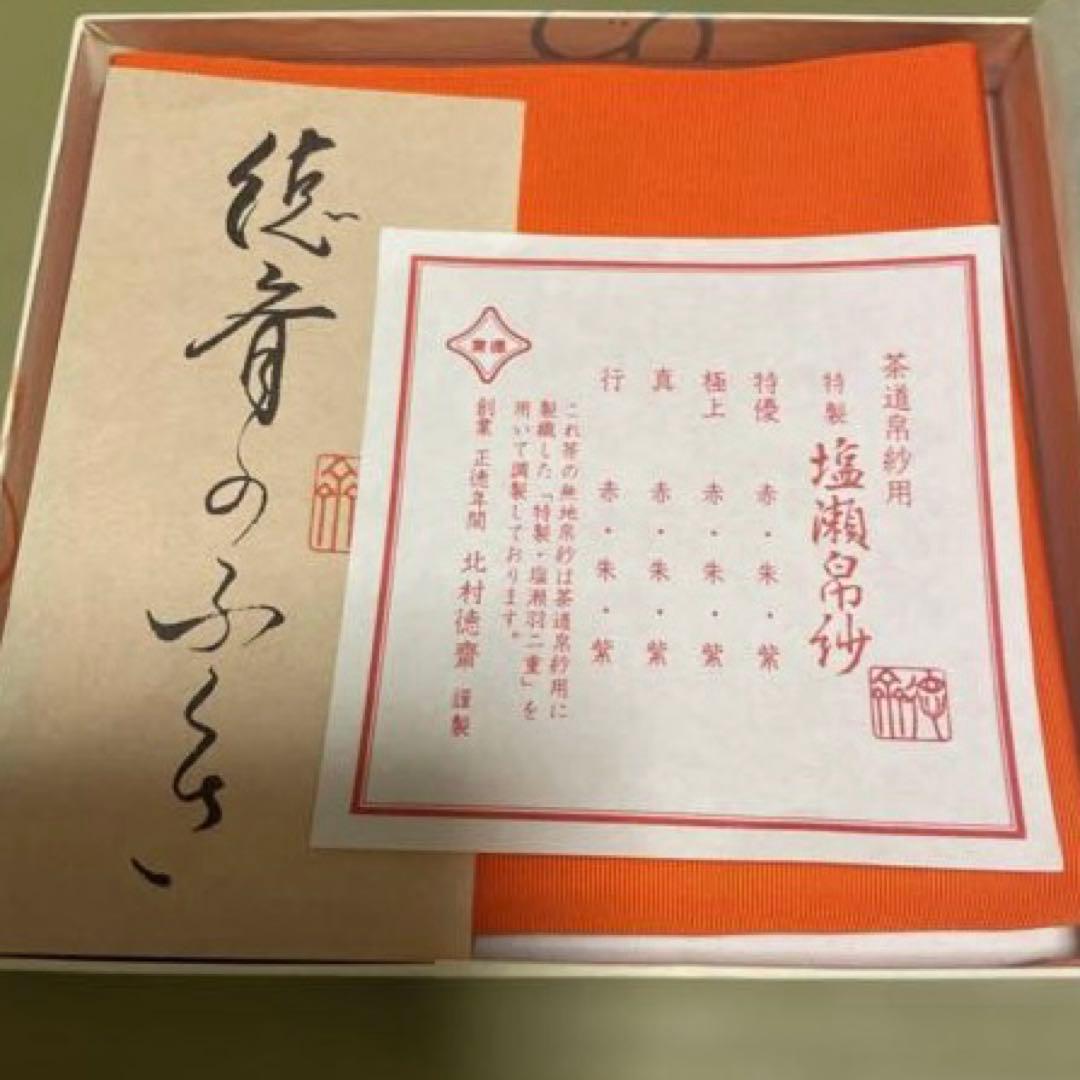 徳斎のふくさ
茶道帛紗用
特製 塩瀬帛紗
特優 赤・朱・紫
極上 赤・朱・紫
真 赤・朱・紫
行 赤・朱・紫
これ等の無地帛紗は茶道帛紗用に
製織した「特製・塩瀬羽二重」を
用いて調製しております。
創業 正徳年間 北村徳齋 謹製